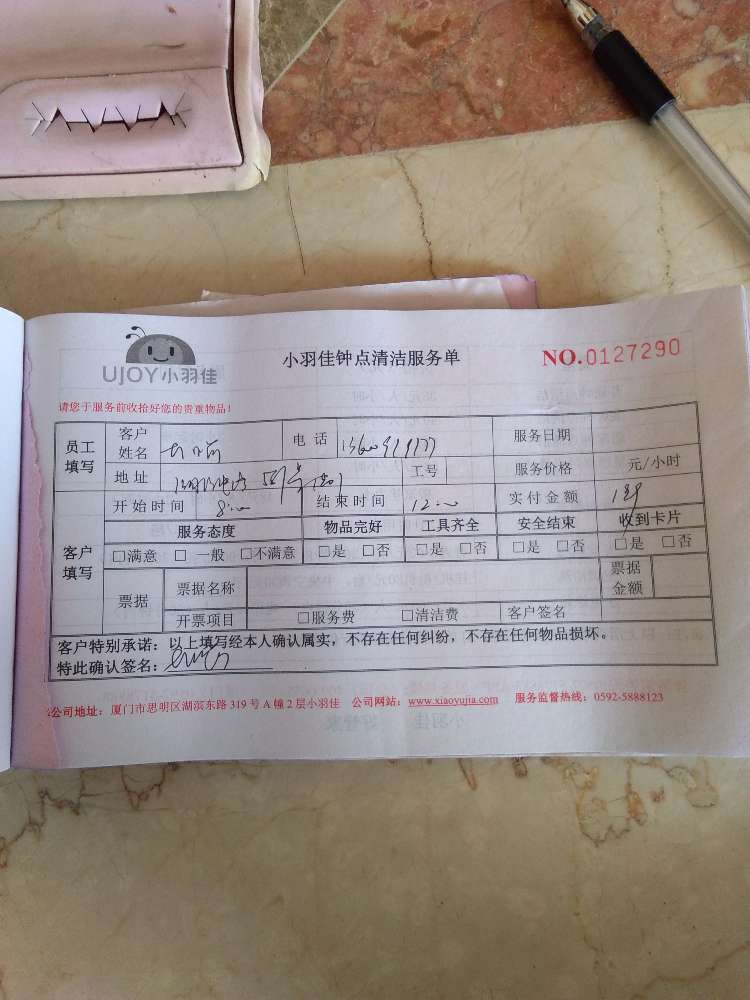 UJOY小羽佳
小羽佳钟点清洁服务单
NO.0127290
请您于服务前收拾好您的贵重物品!
员工填写 客户姓名 电话 服务日期
地址 工号 服务价格 元/小时
开始时间 8:00 结束时间 12:00 实付金额
客户填写 服务态度 物品完好 工具齐全 安全结束 收到卡片
□满意 □一般 □不满意 □是 □否 □是 □否 □是 □否 □是 □否
票据 票据名称 票据金额
开票项目 □服务费 □清洁费 客户签名
客户特别承诺:以上填写经本人确认属实,不存在任何纠纷,不存在任何物品损坏。
特此确认签名:
公司地址:厦门市思明区湖滨东路319号A幢2层小羽佳 公司网站:www.xiaoyujia.com 服务监督热线:0592-5888123